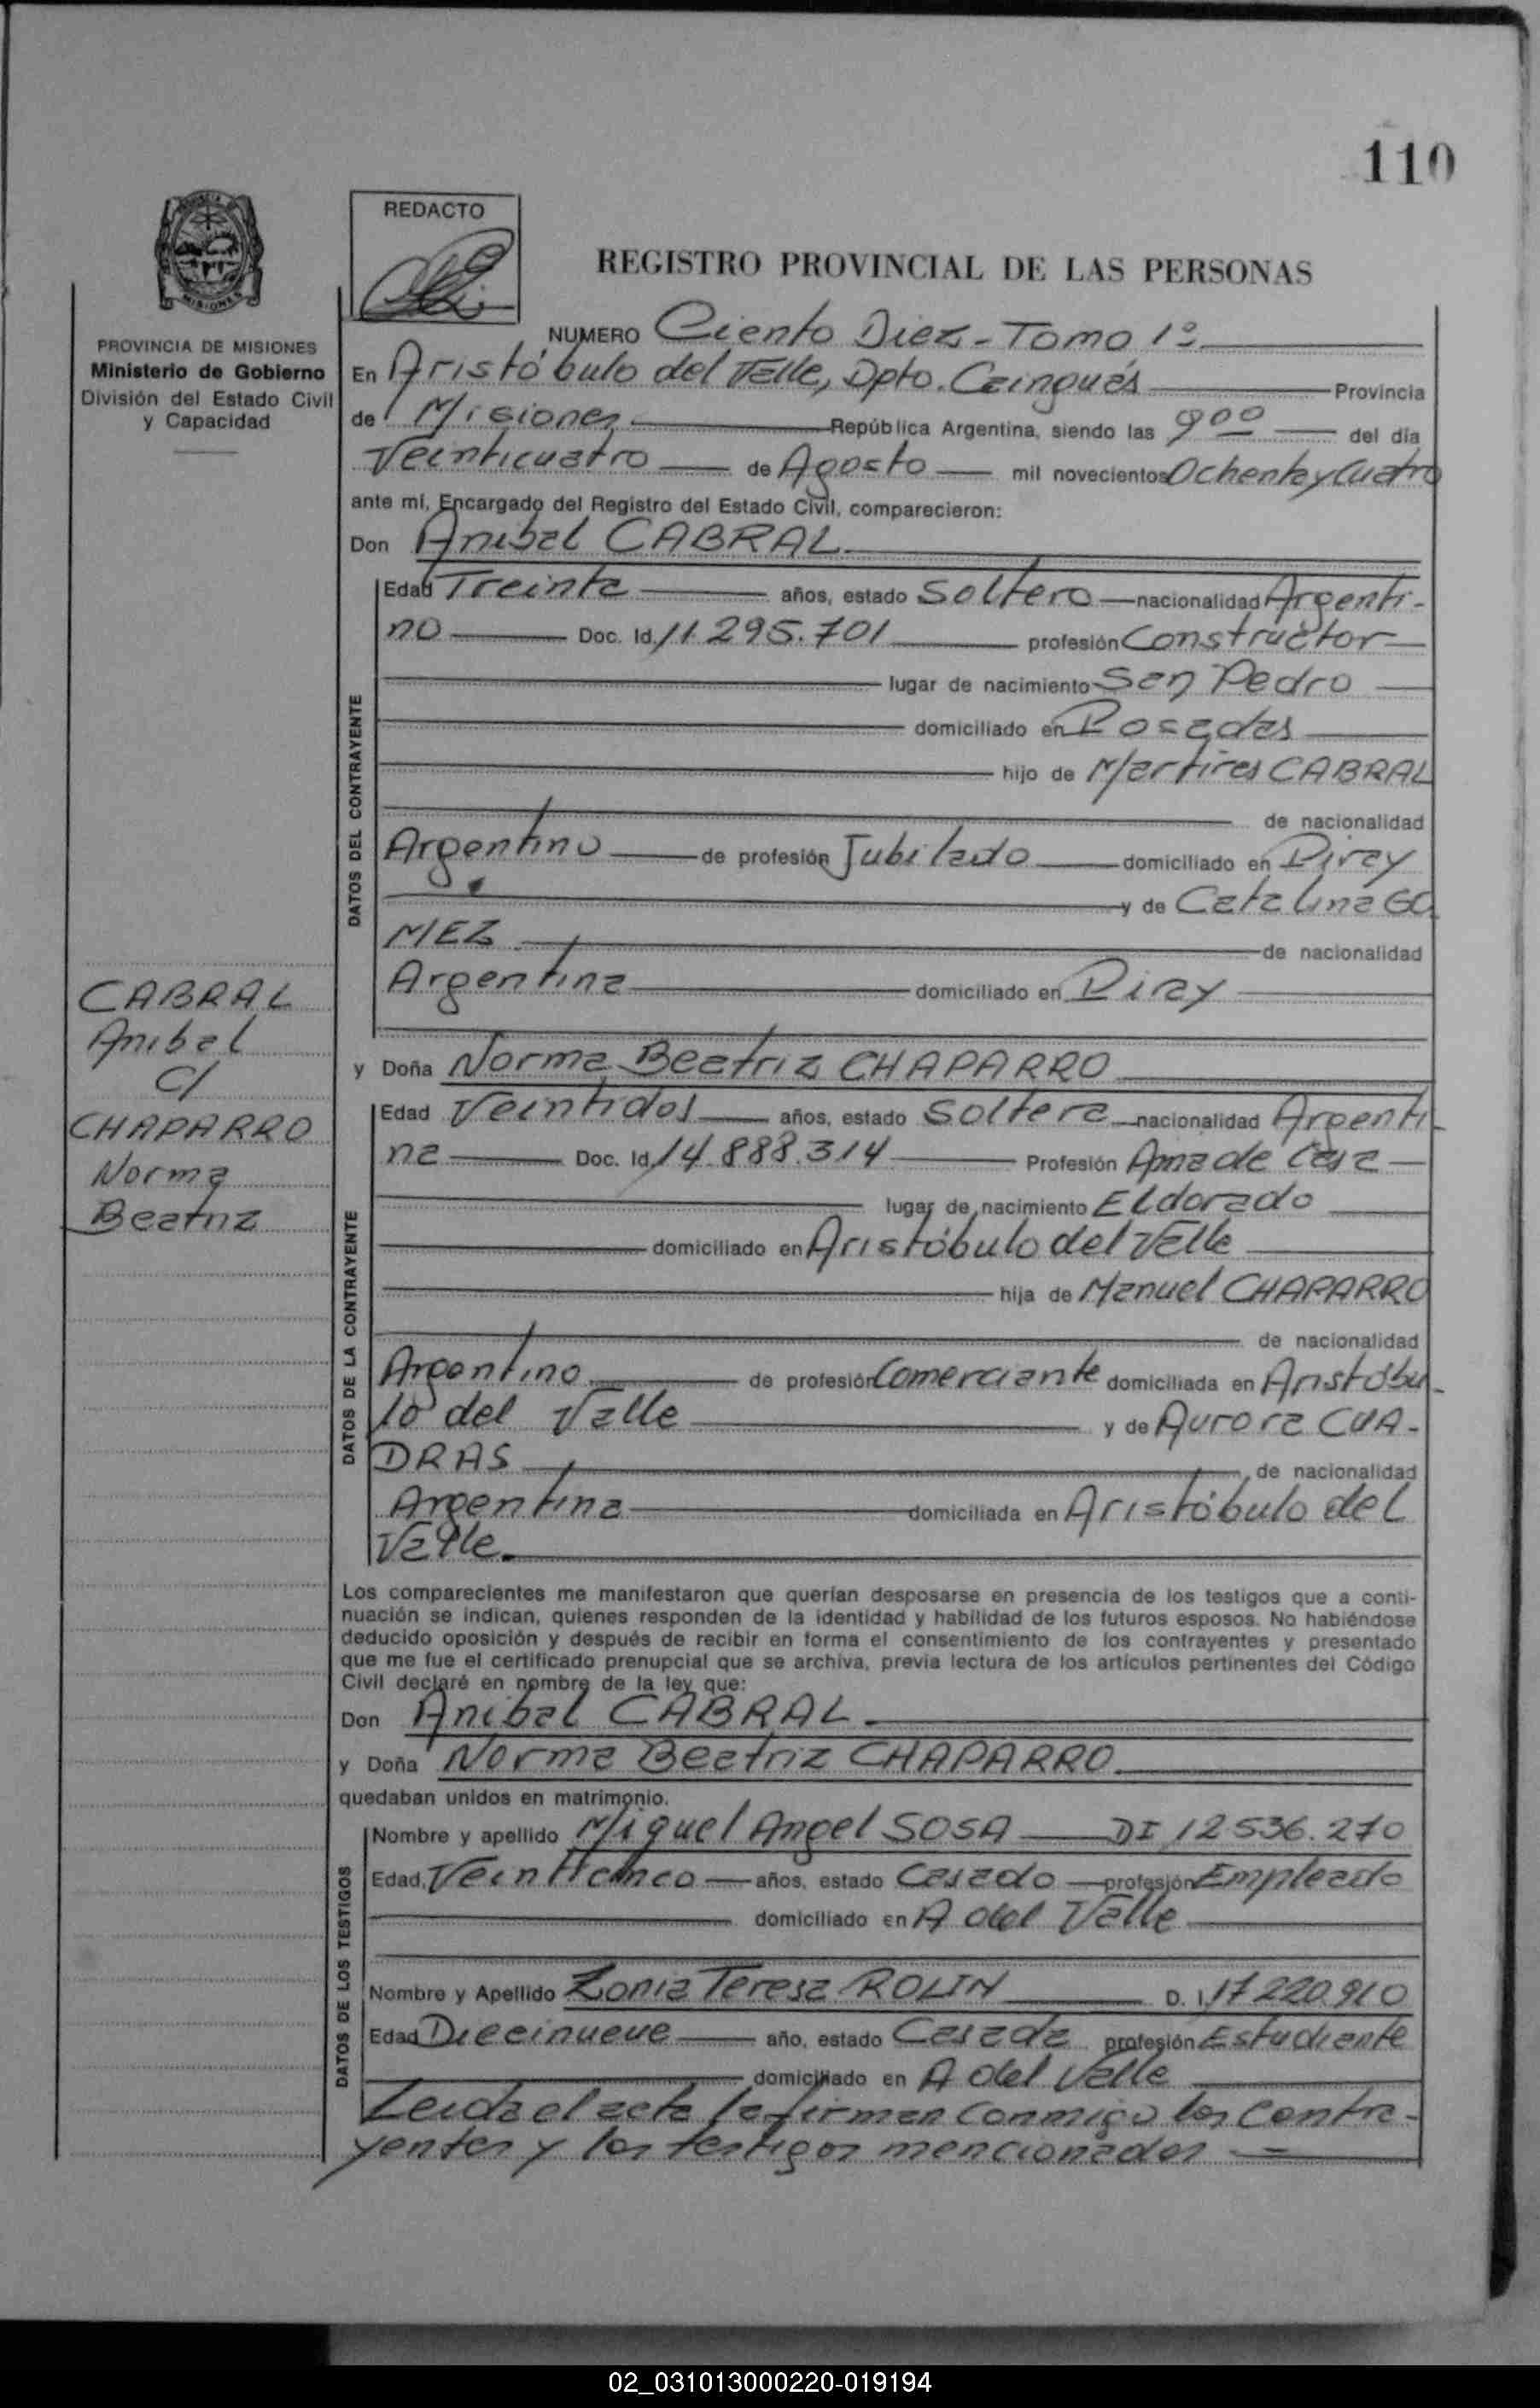 110
REDACTO
REGISTRO PROVINCIAL DE LAS PERSONAS
MISIONES
PROVINCIA DE MISIONES
Ministerio de Gobierno
División del Estado Civil
y Capacidad
NUMERO Ciento Diez - Tomo 1º
En Aristóbulo del Valle, Dpto. Cainguás Provincia
de Misiones República Argentina, siendo las 9 00 del día
Veinticuatro de Agosto mil novecientos Ochenta y Cuatro
ante mí, Encargado del Registro del Estado Civil, comparecieron:
Don Anibal CABRAL
DATOS DEL CONTRAYENTE
Edad Treinta años, estado Soltero nacionalidad Argenti-
no Doc. Id. 11.295.701 profesión Constructor
lugar de nacimiento San Pedro
domiciliado en Posadas
hijo de Martires CABRAL
de nacionalidad
Argentino de profesión Jubilado domiciliado en Piray
y de Catalina GO
MEZ de nacionalidad
Argentina domiciliado en Piray
CABRAL
Anibal
C/
CHAPARRO
Norma
Beatriz
y Doña Norma Beatriz CHAPARRO
DATOS DE LA CONTRAYENTE
Edad Veintidos años, estado Soltera nacionalidad Argenti-
na Doc. Id. 14.888.314 Profesión Ama de Casa
lugar de nacimiento Eldorado
domiciliado en Aristóbulo del Valle
hija de Manuel CHAPARRO
de nacionalidad
Argentino de profesión Comerciante domiciliada en Aristóbu-
lo del Valle y de Aurora CUA-
DRAS de nacionalidad
Argentina domiciliada en Aristóbulo del
Valle.
Los comparecientes me manifestaron que querían desposarse en presencia de los testigos que a conti-
nuación se indican, quienes responden de la identidad y habilidad de los futuros esposos. No habiéndose
deducido oposición y después de recibir en forma el consentimiento de los contrayentes y presentado
que me fue el certificado prenupcial que se archiva, previa lectura de los artículos pertinentes del Código
Civil declaré en nombre de la ley que:
Don Anibal CABRAL
y Doña Norma Beatriz CHAPARRO
quedaban unidos en matrimonio.
DATOS DE LOS TESTIGOS
Nombre y apellido Miguel Angel SOSA DI 12 536.270
Edad Veinticinco años, estado Casado profesión Empleado
domiciliado en A del Valle
Nombre y Apellido Zonia Teresa ROLIN D. I. 17 220.910
Edad Diecinueve año, estado Casada profesión Estudiante
domiciliado en A del Valle
Leida el acta la firman conmigo los contra-
yentes y los testigos mencionados
02_031013000220-019194